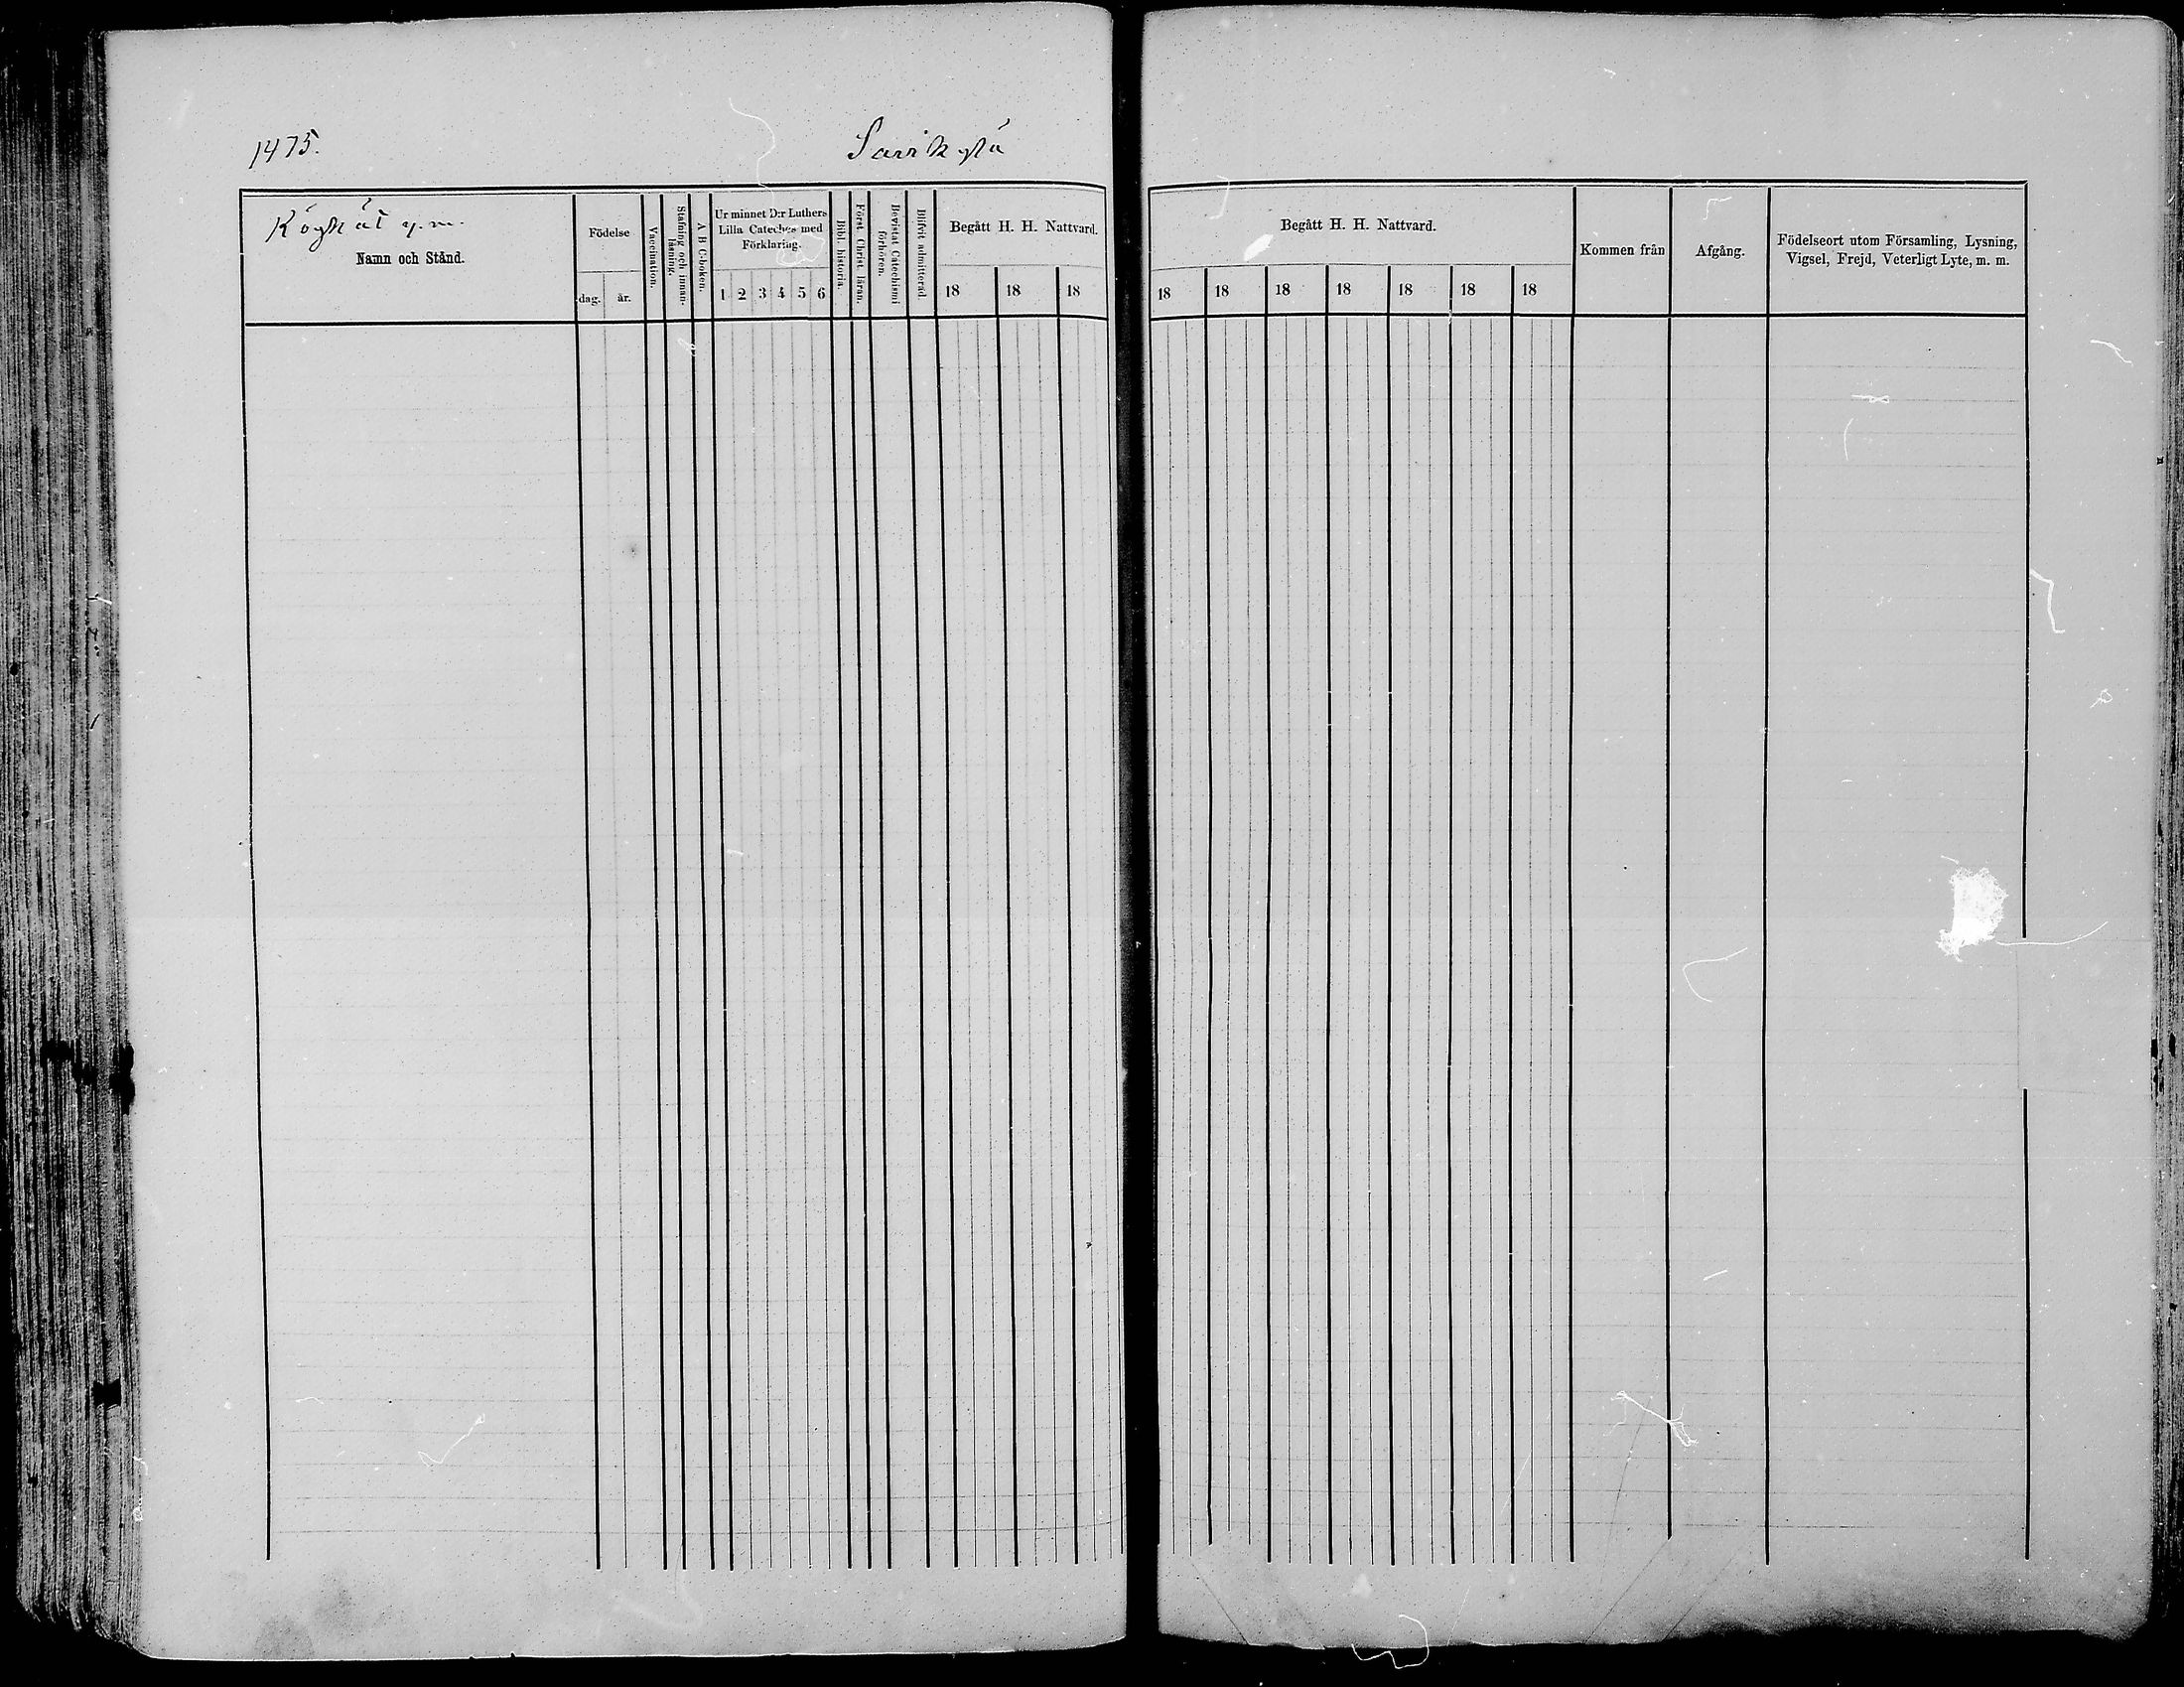 1475.
Savikylä
Köyhät y.m.
Namn och Stånd.
Födelse
dag.
år.
Vaccination.
Stafning och innan-
läsning.
A B C-boken.
Ur minnet D:r Luthers
Lilla Cateches med
Förklaring.
1 2 3 4 5 6
Bibl. historia.
Först. Christ. läran.
Bevistat Catechismi
förhören.
Blifvit admitterad.
Begått H. H. Nattvard.
18 18 18
Begått H. H. Nattvard.
18 18 18 18 18 18 18
Kommen från
Afgång.
Födelseort utom Församling, Lysning,
Vigsel, Frejd, Veterligt Lyte, m. m.